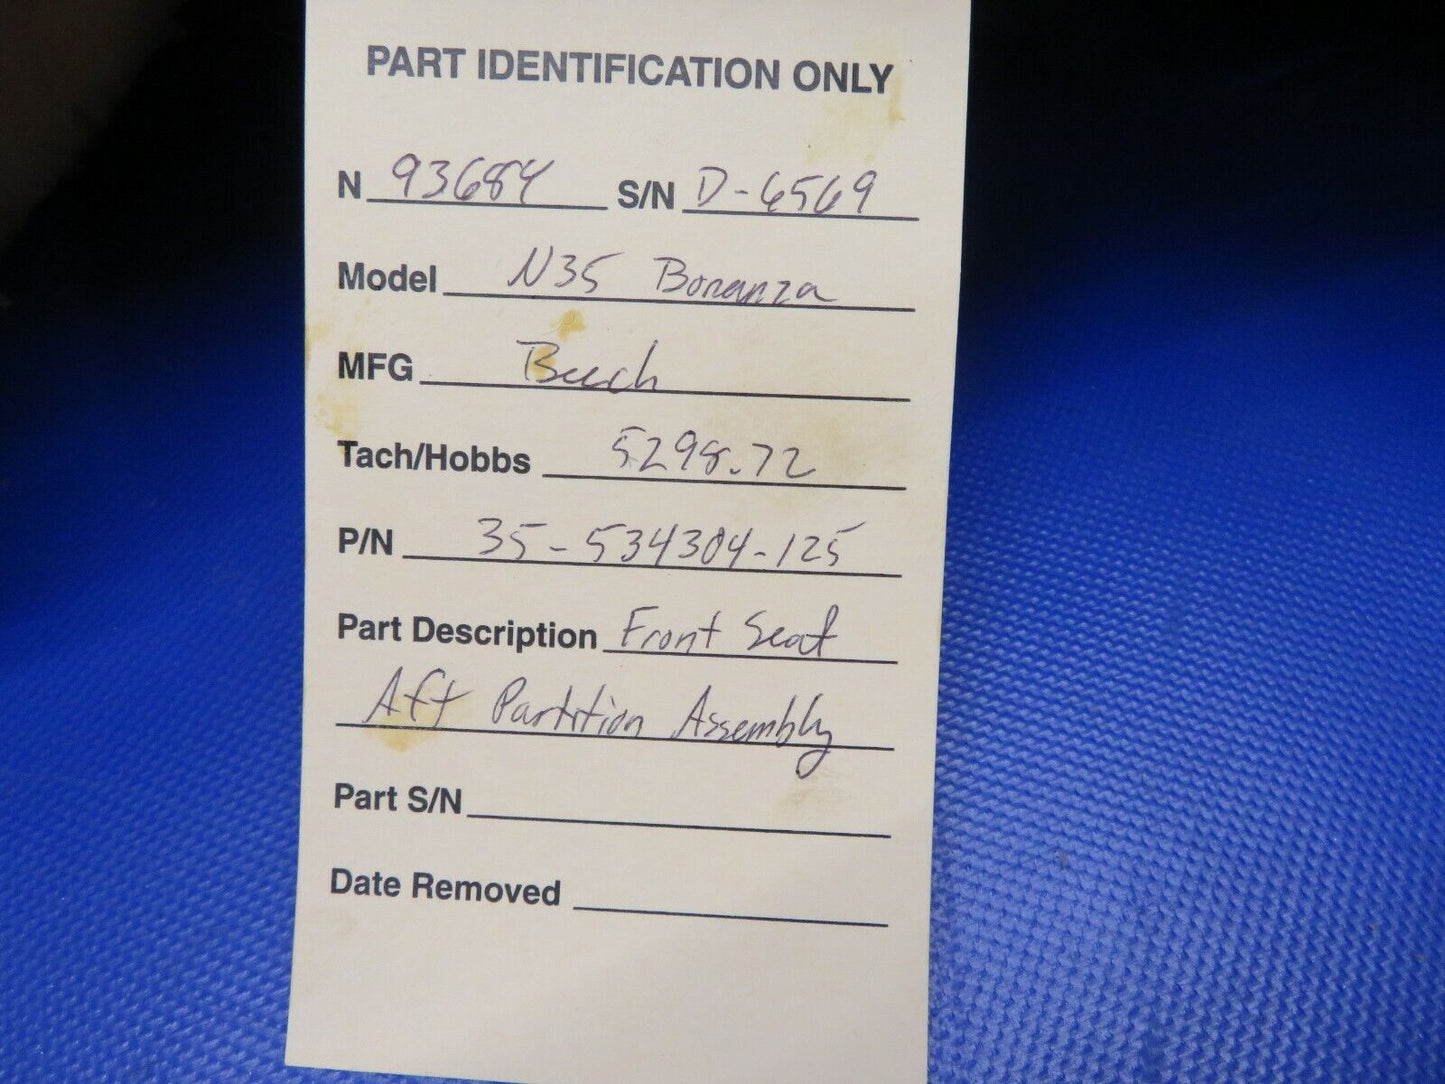 PART IDENTIFICATION ONLY
N 93684 S/N D-6569
Model N35 Bonanza
MFG Beech
Tach/Hobbs 5298.72
P/N 35-534304-125
Part Description Front Seat
Aft Partition Assembly
Part S/N
Date Removed